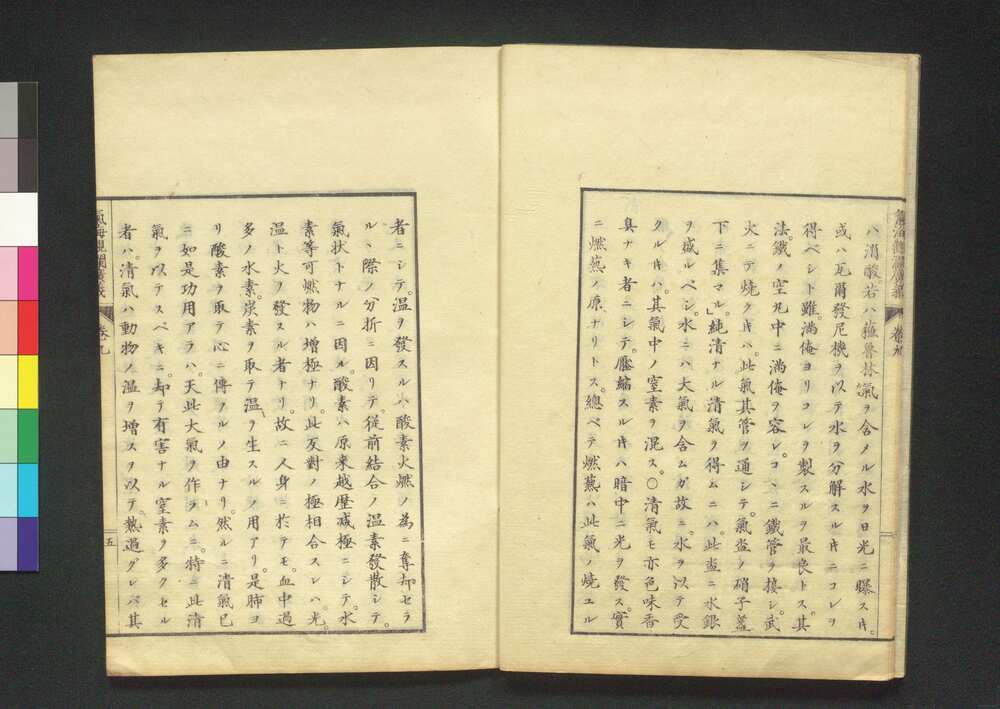 ハ消酸若ハ塩魯林氣ヲ含メル水ヲ日光ニ曝スキ。
或ハ瓦爾發尼機ヲ以テ水ヲ分解スルキニコレヲ
得ベシト雖。満俺ヨリコレヲ製スルヲ最良トス。其
法。鐵ノ空丸中ニ満俺ヲ容レ。コヽニ鐵管ヲ接シ。武
火ニテ焼クキハ。此氣其管ヲ通シテ。氣盗ノ硝子蓋
下ニ集マル」純清ナル清氣ヲ得ムニハ。此盗ニ水銀
ヲ盛ルベシ。水ニハ大氣ヲ含ムガ故ニ。水ヲ以テ受
クルキハ。其氣中ノ窒素ヲ混ス。〇清氣モ亦色味香
臭ナキ者ニシテ。壓縮スルキハ暗中ニ光ヲ發ス。實
ニ燃蒸ノ原ナリトス。總ベテ燃蒸ハ此氣ノ焼ユル
氣海觀瀾廣義 卷九
者ニシテ。温ヲ發スルハ酸素火燃ノ為ニ奪却セラ
ルヽ際ノ分析ニ因リテ。從前結合ノ温素發散シテ。
氣状トナルニ因ル。酸素ハ原来越歴減極ニシテ。水
素等可燃物ハ増極ナリ。此反對ノ極相合スレハ。光。
温ト火ヲ發スル者ナリ。故ニ人身ニ於テモ。血中過
多ノ水素。炭素ヲ取テ温ヲ生スルノ用アリ。是肺ヨ
リ酸素ヲ取テ心ニ傳フルノ由ナリ。然ルニ清氣已
ニ如是功用アラハ。天此大氣ヲ作ラムニ。特ニ此清
氣ヲ以テスベキニ。却テ有害ナル窒素ヲ多クセル
者ハ。清氣ハ動物ノ温ヲ増スヲ以テ。熱過グレバ其
氣海觀瀾廣義 卷九 五